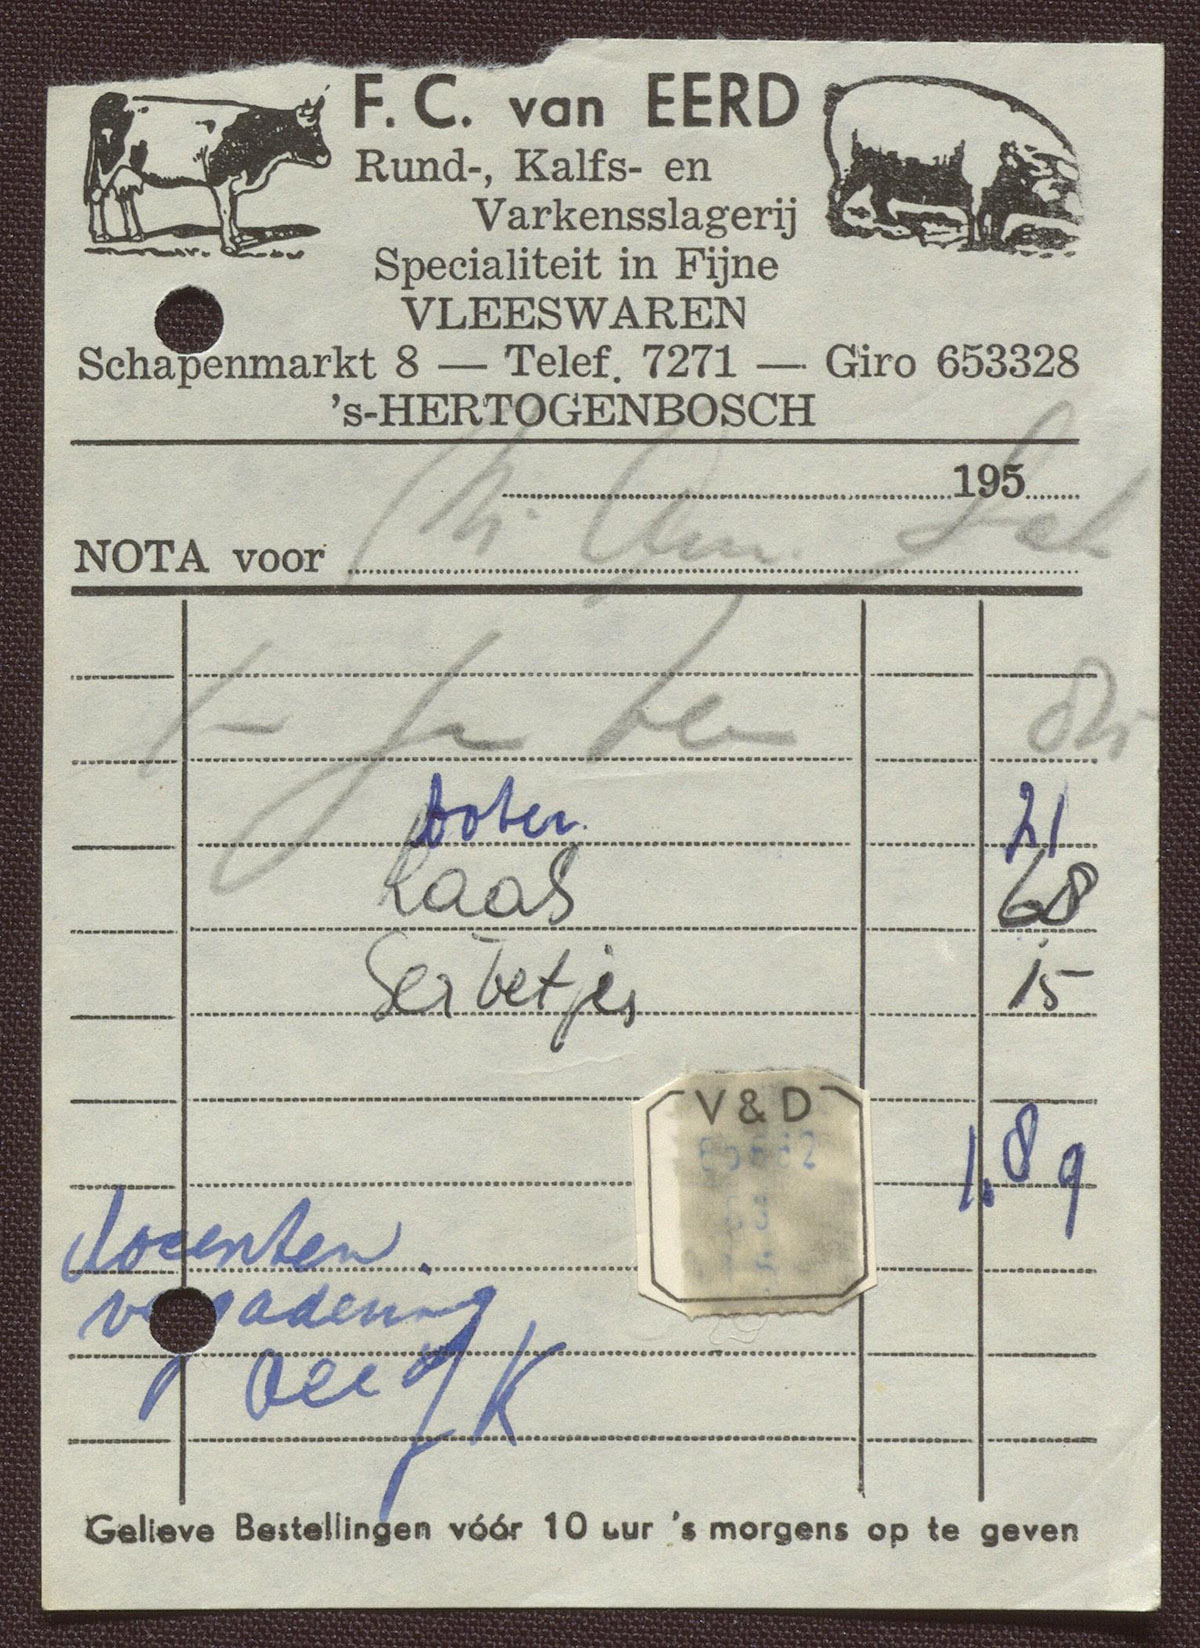 F. C. van EERD
Rund-, Kalfs- en
Varkensslagerij
Specialiteit in Fijne
VLEESWAREN
Schapenmarkt 8 — Telef. 7271 — Giro 653328
's-HERTOGENBOSCH
195
NOTA voor
boter. 21
Kaas 68
Servetjes 15
V & D
1.89
docenten.
vergadering
Gelieve Bestellingen vóór 10 uur 's morgens op te geven